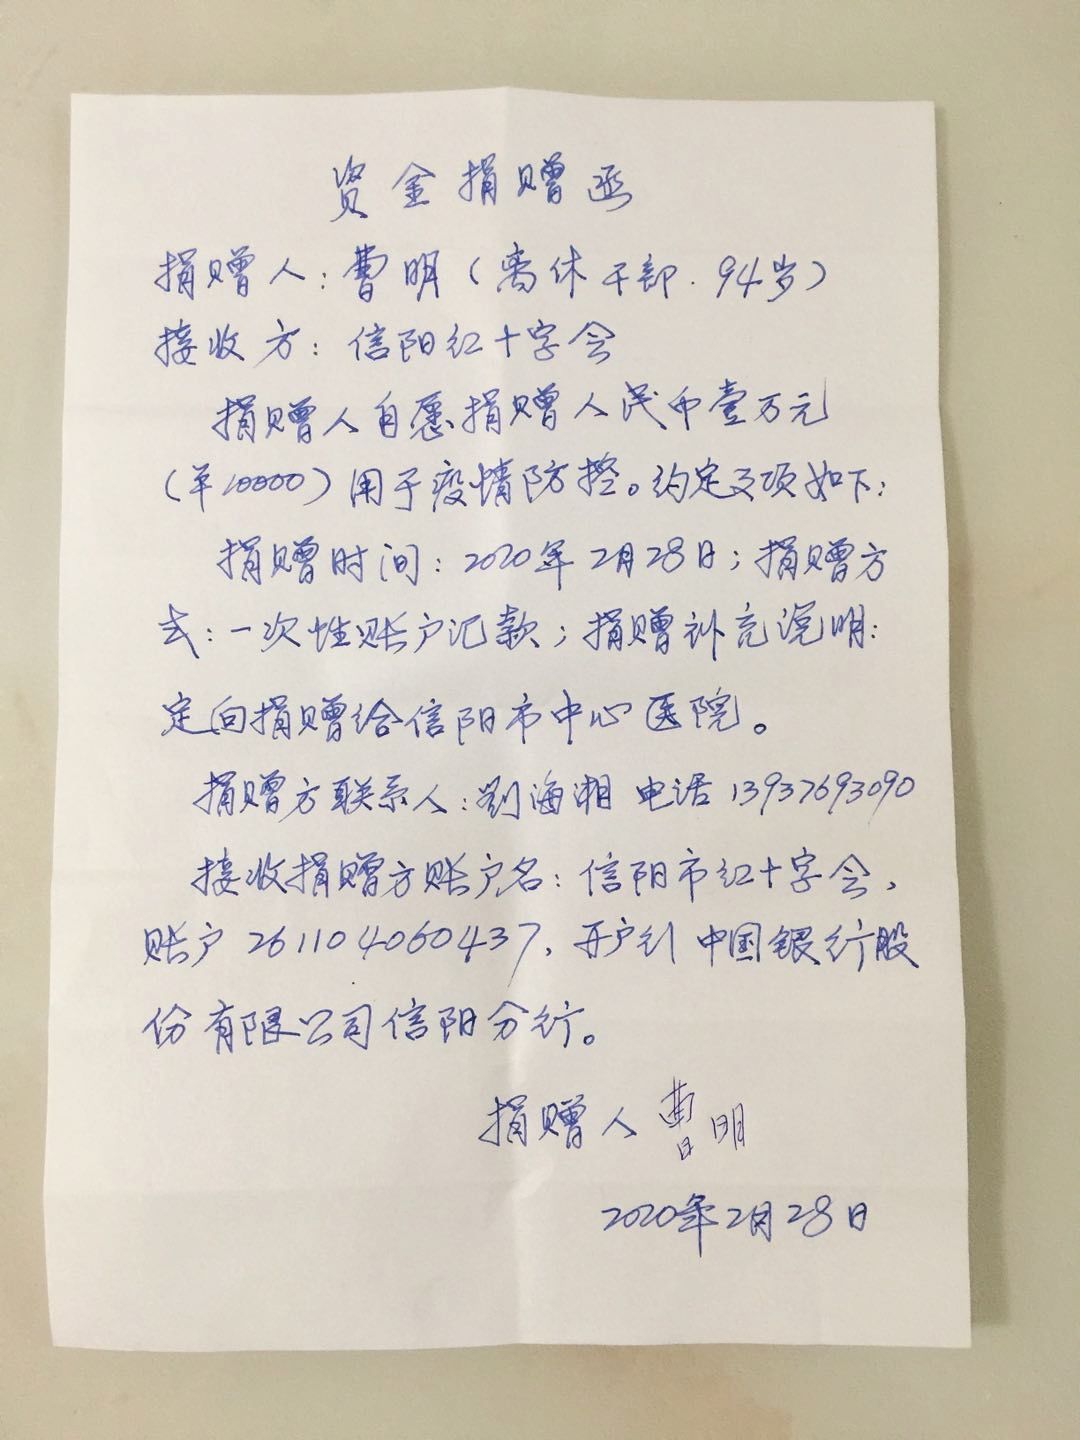 资金捐赠函
捐赠人：曹明（离休干部．94岁）
接收方：信阳红十字会
捐赠人自愿捐赠人民币壹万元
（￥10000）用于疫情防控。约定事项如下：
捐赠时间：2020年2月28日；捐赠方
式：一次性账户汇款；捐赠补充说明：
定向捐赠给信阳市中心医院。
捐赠方联系人：刘海湘 电话 13937693090
接收捐赠方账户名：信阳市红十字会，
账户261104060437，开户行 中国银行股
份有限公司信阳分行。
捐赠人 曹明
2020年2月28日